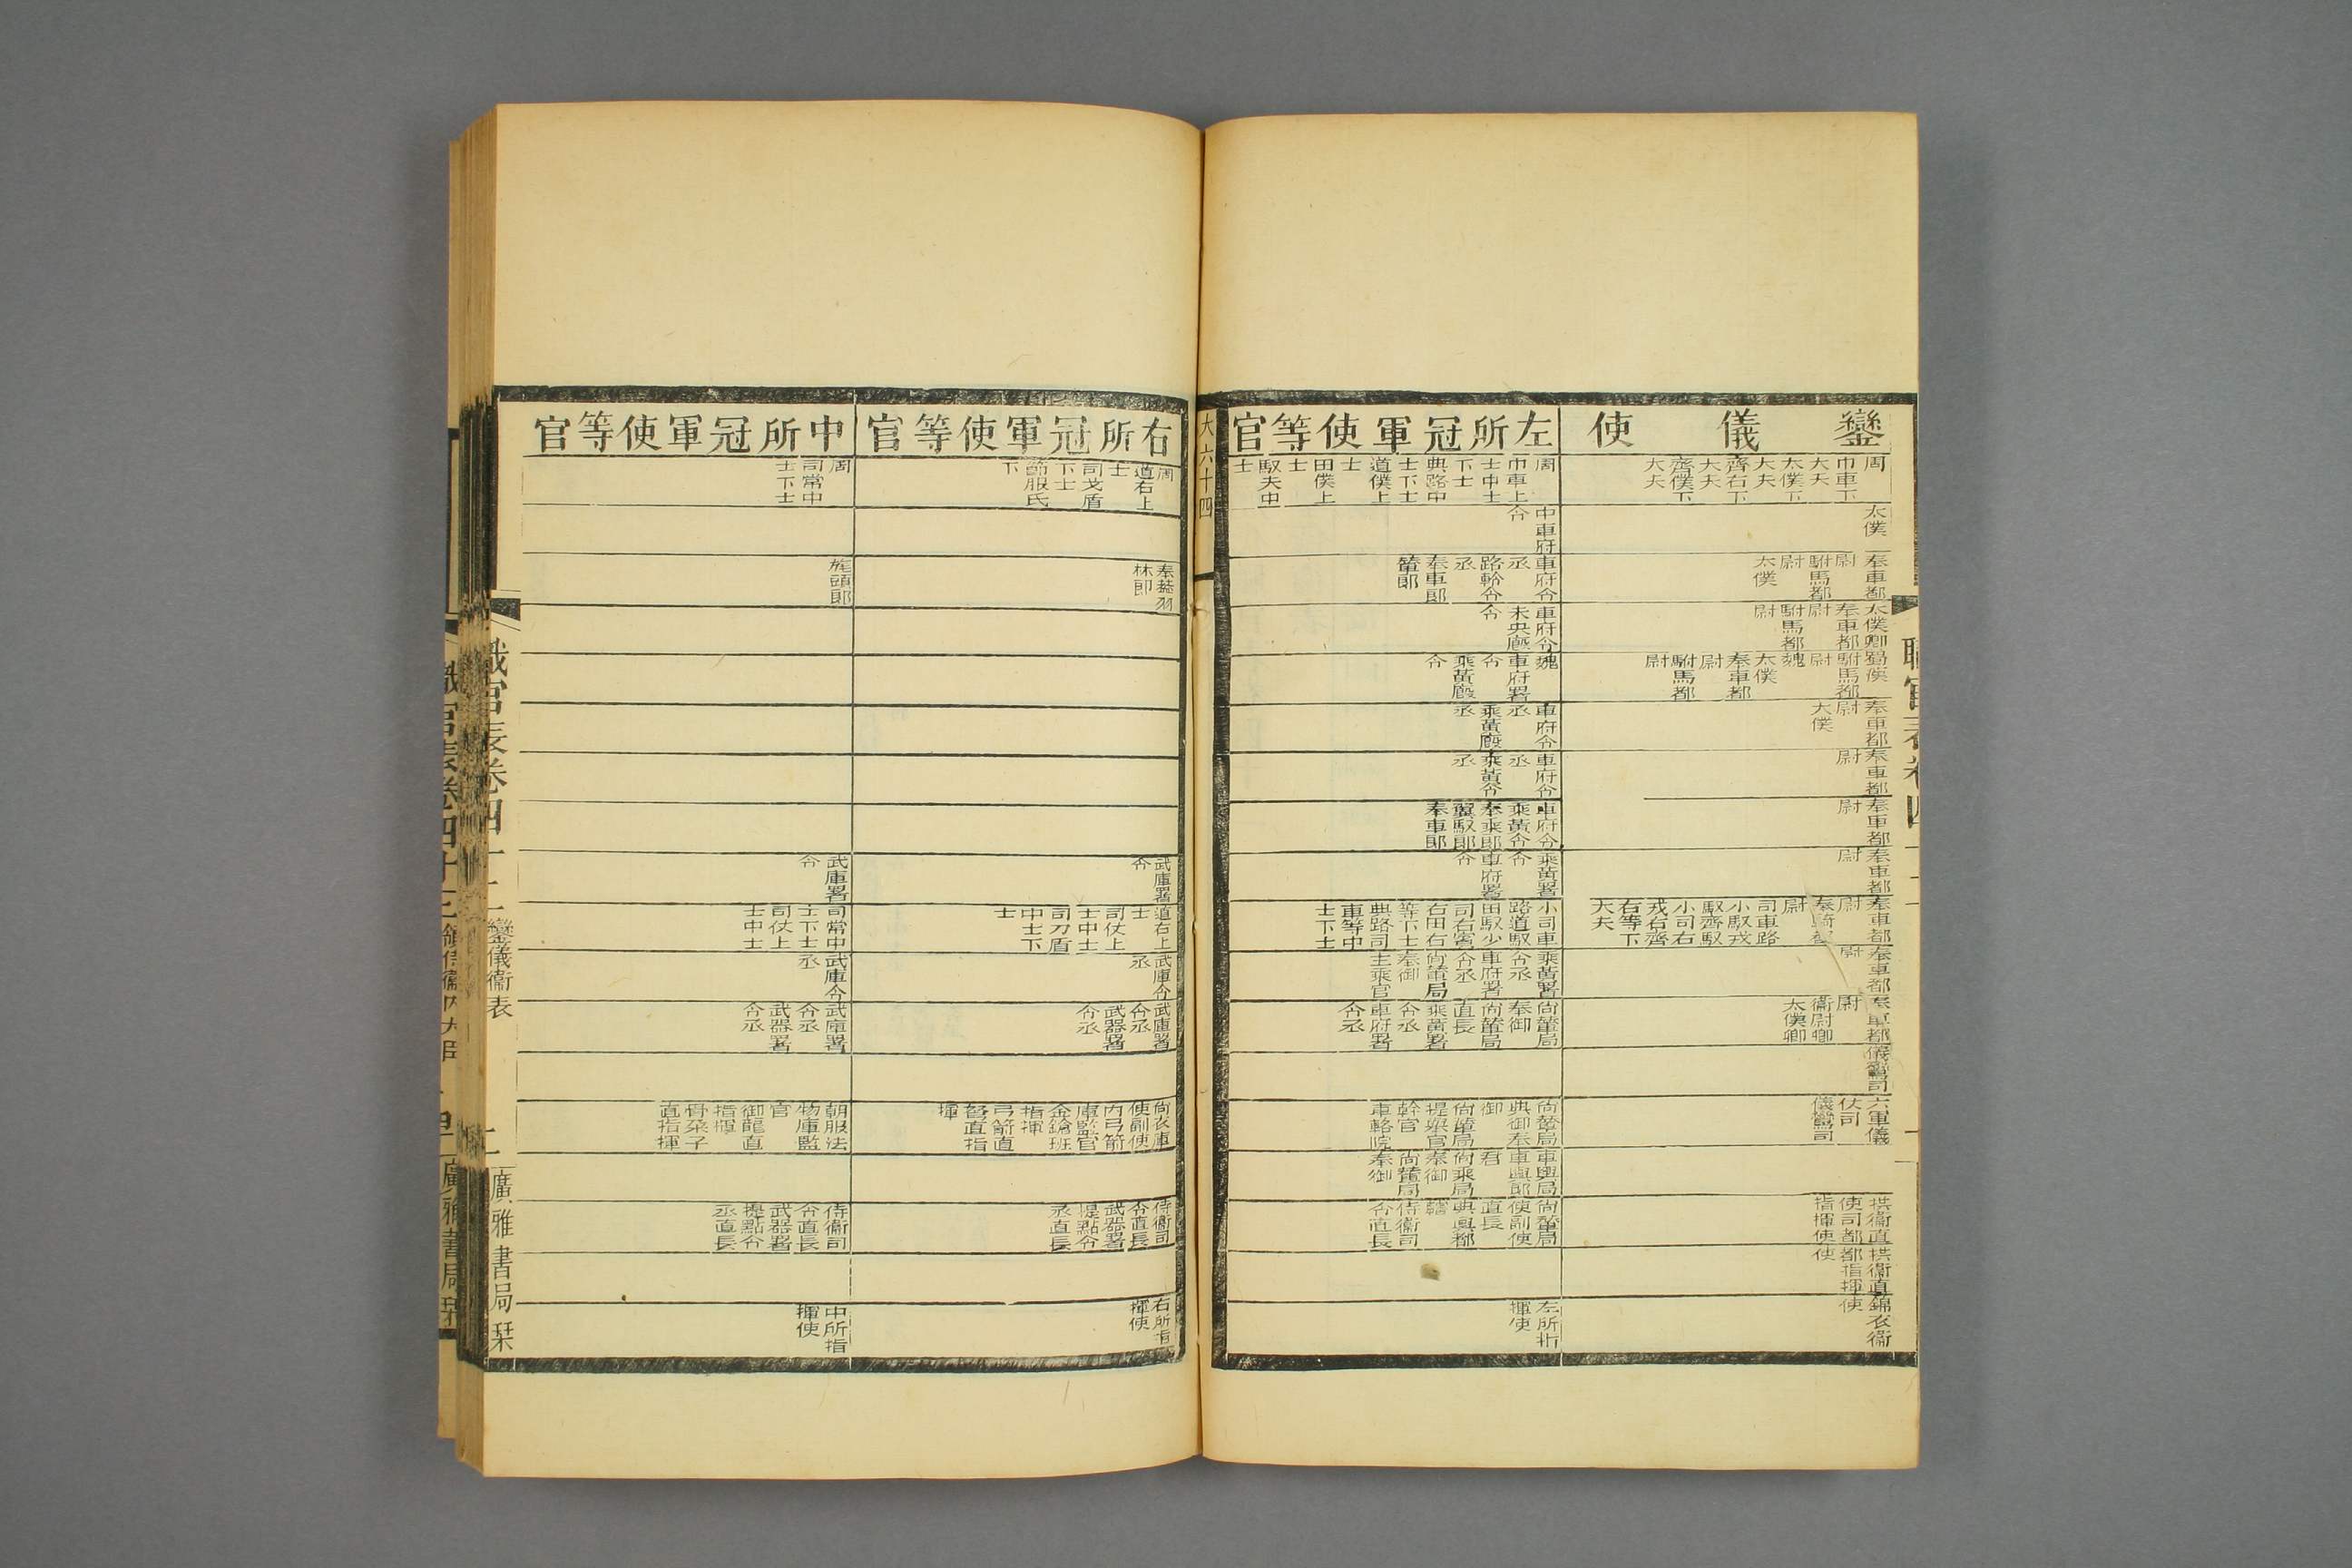 鑾儀使
周
巾車下
大夫
太僕下
大夫
齊右下
大夫
齊僕下
大夫
太僕
奉車都
尉
駙馬都
尉
太僕
太僕卿
奉車都
尉
駙馬都
尉
蜀漢
駙馬都
尉
魏
太僕
奉車都
尉
駙馬都
尉
奉車都
尉
大僕
奉車都
尉
奉車都
尉
奉車都
尉
奉車都
尉
奉騎都
尉
司車路
小馭戎
馭齊馭
小司右
戎右齊
右等下
大夫
奉車都
尉
奉車都
尉
衞尉卿
太僕卿
儀鸞司
六軍儀
仗司
儀鸞司
拱衞直
使司都
指揮使
拱衞直
都指揮
使
錦衣衞
使
左所冠軍使等官
周
巾車上
士中士
下士
典路中
士下士
道僕上
士
田僕上
士
馭夫中
士
中車府
令
車府令
丞
路軨令
丞
奉車郎
輦郎
車府令
未央廄
令
魏
車府署
令
乘黃廄
令
車府令
丞
乘黃廄
丞
車府令
丞
乘黃令
丞
車府令
乘黃令
奉乘郎
翼馭郎
奉車郎
乘黃署
令
車府署
令
小司車
路道馭
田馭少
司右賓
右田右
等下士
典路司
車等中
士下士
乘黃署
令丞
車府署
令丞
尚輦局
奉御
主乘官
尚輦局
奉御
尚輦局
直長
乘黃署
令丞
車府署
令丞
尚輦局
典御奉
御
尚輦局
提舉官
幹官
車輅院
車輿局
車輿郎
君
尚乘局
奉御
尚輦局
奉御
尚輦局
使副使
直長
典輿都
轄
侍衞司
令直長
左所指
揮使
大六十四
右所冠軍使等官
周
道右上
士
司戈盾
下士
節服氏
下
奉蓋羽
林郎
武庫署
令
道右上
士
司仗上
士中士
司刀盾
中士下
士
武庫令
丞
武庫署
令丞
武器署
令丞
尚衣庫
使副使
內弓箭
庫監官
金鎗班
指揮
弓箭直
弩直指
揮
侍衞司
令直長
武器署
提點令
丞直長
右所指
揮使
中所冠軍使等官
周
司常中
士下士
旄頭郎
武庫署
令
司常中
士下士
司仗上
士中士
武庫令
丞
武庫署
令丞
武器署
令丞
朝服法
物庫監
官
御龍直
指揮
骨朶子
直指揮
侍衞司
令直長
武器署
提點令
丞直長
中所指
揮使
職官表卷四十二 鑾儀衞表 二 廣雅書局栞